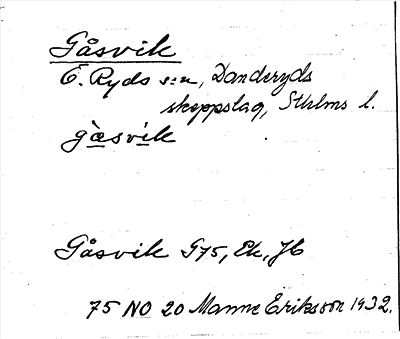 Gåsvik
Ö. Ryds s:n, Danderyds
skeppslag, Sthlms l.
gåsvik
Gåsvik G75, Ek, JC
75 NO 20 Manne Eriksson 1932.